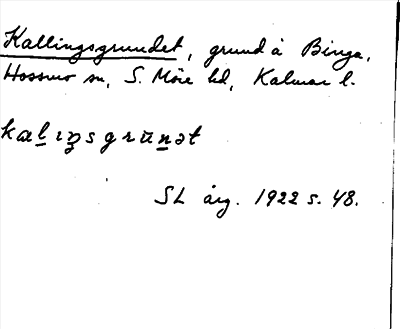 Kallingsgrundet, grund å Binga,
Hossmo sn, S. Möre hd, Kalmar l.
kal ıŋsgrünət
SL årg. 1922 s. 48.